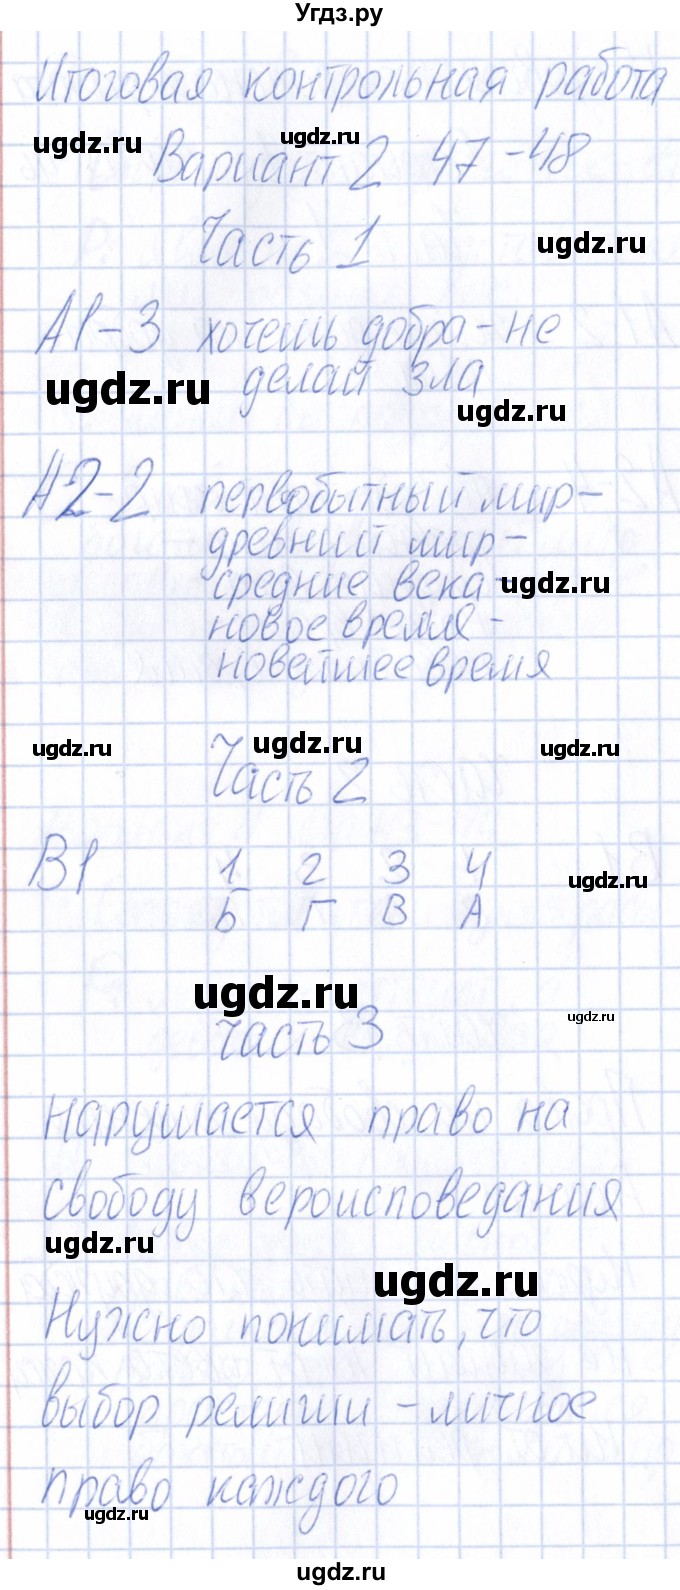 Угдз.ру
Итоговая контрольная работа
ugdz.ru ugdz.ru
Вариант 2 47-48
ugdz.ru
Часть 1
А1-3 хочешь добра - не
делай зла
ugdz.ru ugdz.ru
А2-2 первобытный мир-
древний мир-
средние века- ugdz.ru
новое время -
новейшее время
ugdz.ru ugdz.ru ugdz.ru
Часть 2
В1 1 2 3 4
ugdz.ru
Б Г В А
ugdz.ru ugdz.ru
часть 3
нарушается право на
свободу вероисповедания
ugdz.ru ugdz.ru
Нужно понимать, что
выбор религии - личное
право каждого
ugdz.ru
ugdz.ru